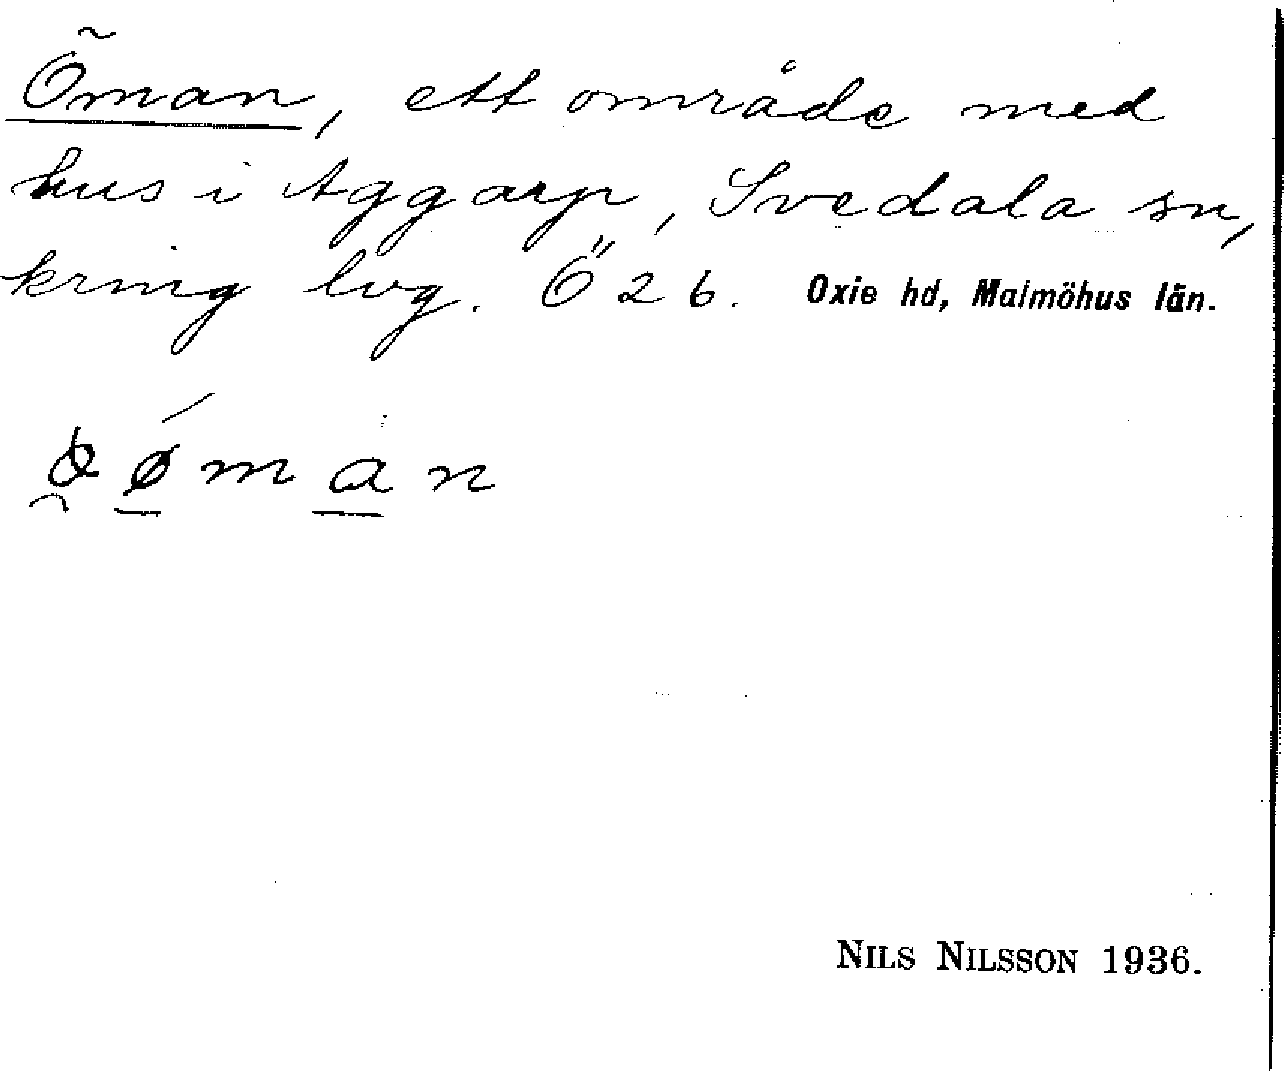 Öman, ett område med
hus i Aggarp, Svedala sn,
kring lvg. Ö 26. Oxie hd, Malmöhus län.
ø̀ǿman
NILS NILSSON 1936.